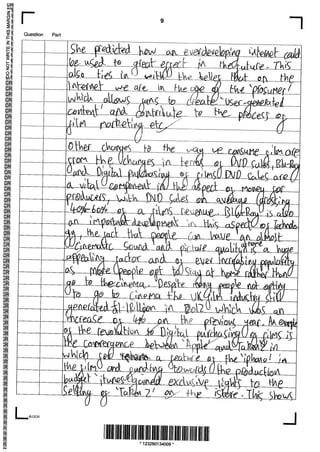 9
Question Part
She predicted how an everdeveloping internet could
be used to great effect in the future. This
also ties in with the belief that on the
internet we are in the age of the 'prosumer'
which allows fans to create 'user-generated
content' and contribute to the process of
film marketing etc
Other changes to the way we consume film are
from the changes in terms of DVD sales, Blu-Ray
and Digital purchasing of films. DVD sales are
a vital component in the aspect of money for
producers, with DVD sales on average grossing
40%-60% of a films revenue. Blu-Ray is also
an important development in this aspect of
the fact that people can have an almost
cinematic sound and picture quality is a huge
appealing factor and of ever increasing popularity
as more people opt to stay at home rather than
go to the cinema. Despite many people not opting
to go to cinema the UK film industry still
generated £1.1billion in 2012 which was an
increase of 4% on the previous year. An example
of the revolution to Digital purchasing of films is
the convergence between 'Apple' and Taken 2 in
which a feature of the 'iphone' in
the film and funding towards the production
budget 'itunes' gained exclusive rights to the
selling of 'Taken 2' on the istore. This shows